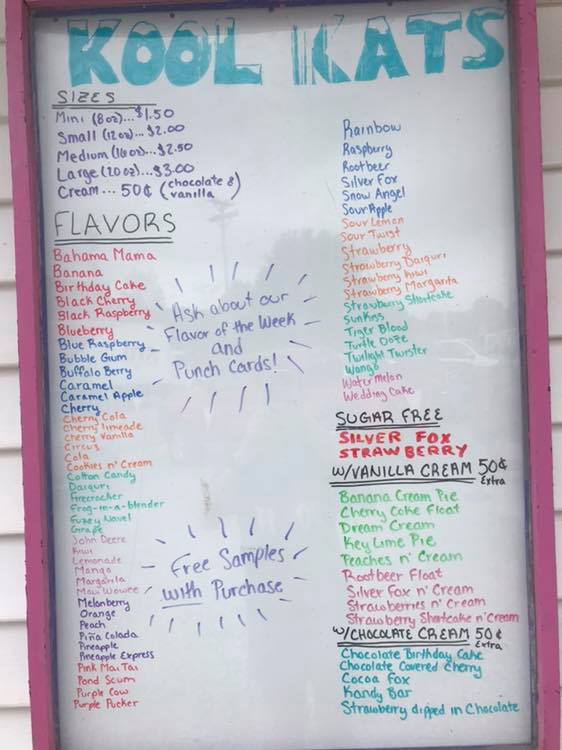 KOOL KATS
SIZES
Mini (8oz)...$1.50
Small (12oz)...$2.00
Medium (16oz)...$2.50
Large (20oz)...$3.00
Cream... 50¢ (chocolate & vanilla)
FLAVORS
Bahama Mama
Banana
Birthday Cake
Black Cherry
Black Raspberry
Blueberry
Blue Raspberry
Bubble Gum
Buffalo Berry
Caramel
Caramel Apple
Cherry
Cherry Cola
Cherry limeade
Cherry Vanilla
Circus
Cola
Cookies n' Cream
Cotton Candy
Daiquri
Firecracker
Frog-in-a-blender
Fuzzy Navel
Grape
John Deere
Kiwi
Lemonade
Mango
Margarita
Maui Wowee
Melonberry
Orange
Peach
Piña Colada
Pineapple
Pineapple Express
Pink Mai Tai
Pond Scum
Purple Cow
Purple Pucker
Ask about our
Flavor of the Week
and
Punch Cards!
Free Samples
with Purchase
Rainbow
Raspberry
Rootbeer
Silver Fox
Snow Angel
Sour Apple
Sour Lemon
Sour Twist
Strawberry
Strawberry Daiquri
Strawberry Kiwi
Strawberry Margarita
Strawberry Shortcake
Sunkiss
Tiger Blood
Turtle Ooze
Twilight Twister
Wango
Water Melon
Wedding Cake
SUGAR FREE
SILVER FOX
STRAWBERRY
W/VANILLA CREAM 50¢ Extra
Banana Cream Pie
Cherry Coke Float
Dream Cream
Key Lime Pie
Peaches n' Cream
Rootbeer Float
Silver Fox n' Cream
Strawberries n' Cream
Strawberry Shortcake n' Cream
W/CHOCOLATE CREAM 50¢ Extra
Chocolate Birthday Cake
Chocolate Covered Cherry
Cocoa Fox
Kandy Bar
Strawberry dipped in Chocolate